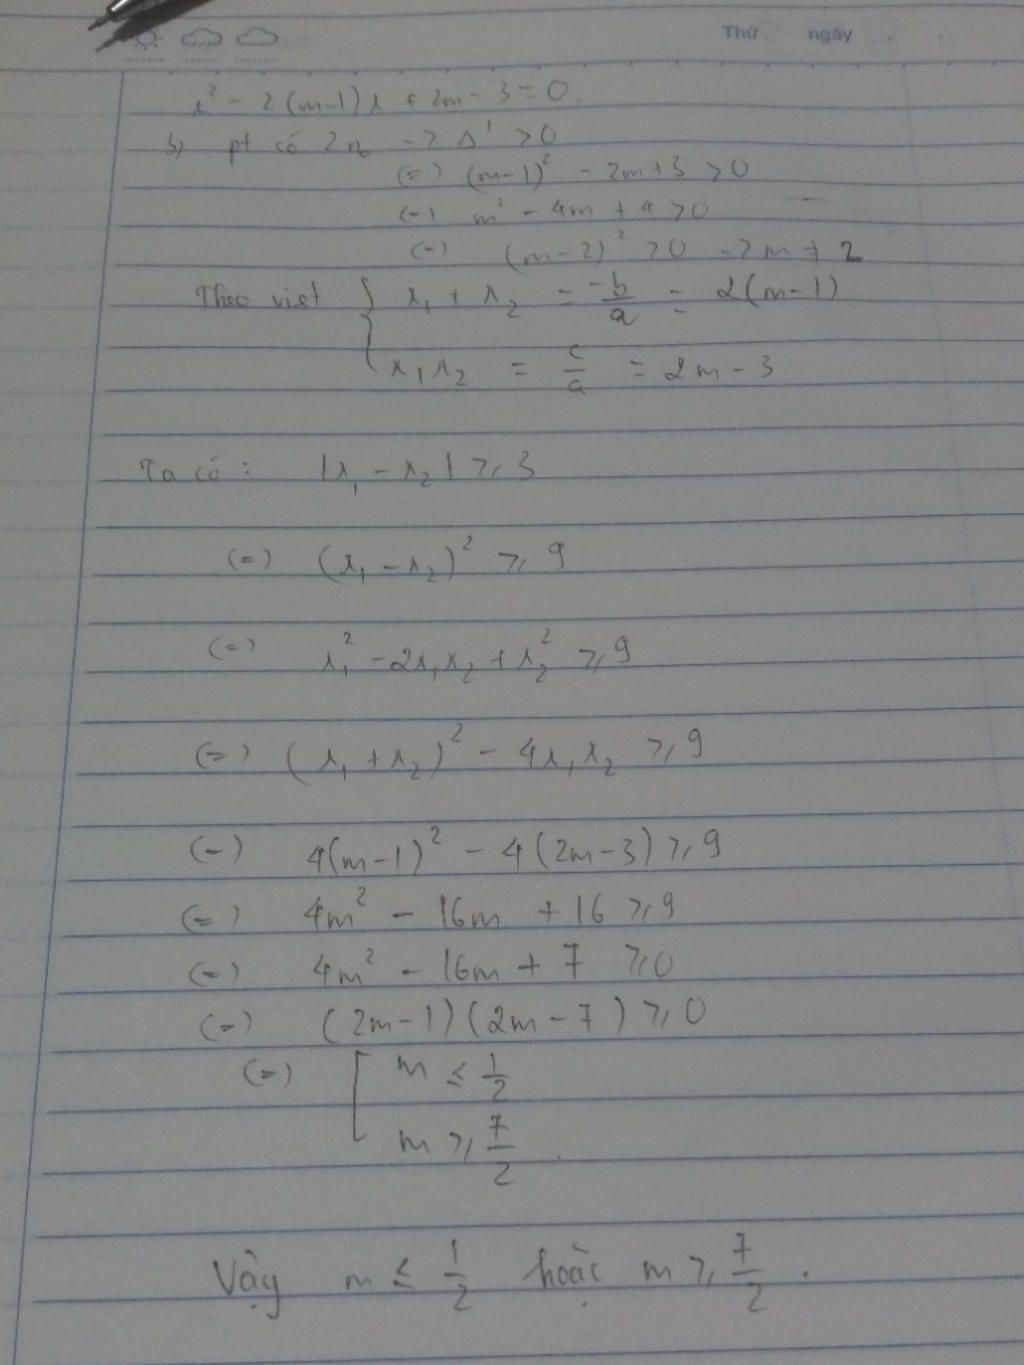 Thứ ngày
x² - 2(m-1)x + 2m - 3 = 0.
b, pt có 2 n₀ -> Δ' > 0
(=) (m-1)² - 2m + 3 > 0
(=) m² - 4m + 4 > 0
(=) (m-2)² > 0 -> m ≠ 2
Theo viet { x₁ + x₂ = -b/a = 2(m-1)
x₁x₂ = c/a = 2m - 3
Ta có : |x₁ - x₂| ≥ 3
(=) (x₁ - x₂)² ≥ 9
(=) x₁² - 2x₁x₂ + x₂² ≥ 9
(=) (x₁ + x₂)² - 4x₁x₂ ≥ 9
(=) 4(m-1)² - 4(2m-3) ≥ 9
(=) 4m² - 16m + 16 ≥ 9
(=) 4m² - 16m + 7 ≥ 0
(=) (2m-1)(2m-7) ≥ 0
(=) [ m ≤ 1/2
m ≥ 7/2 .
Vậy m ≤ 1/2 hoặc m ≥ 7/2 .